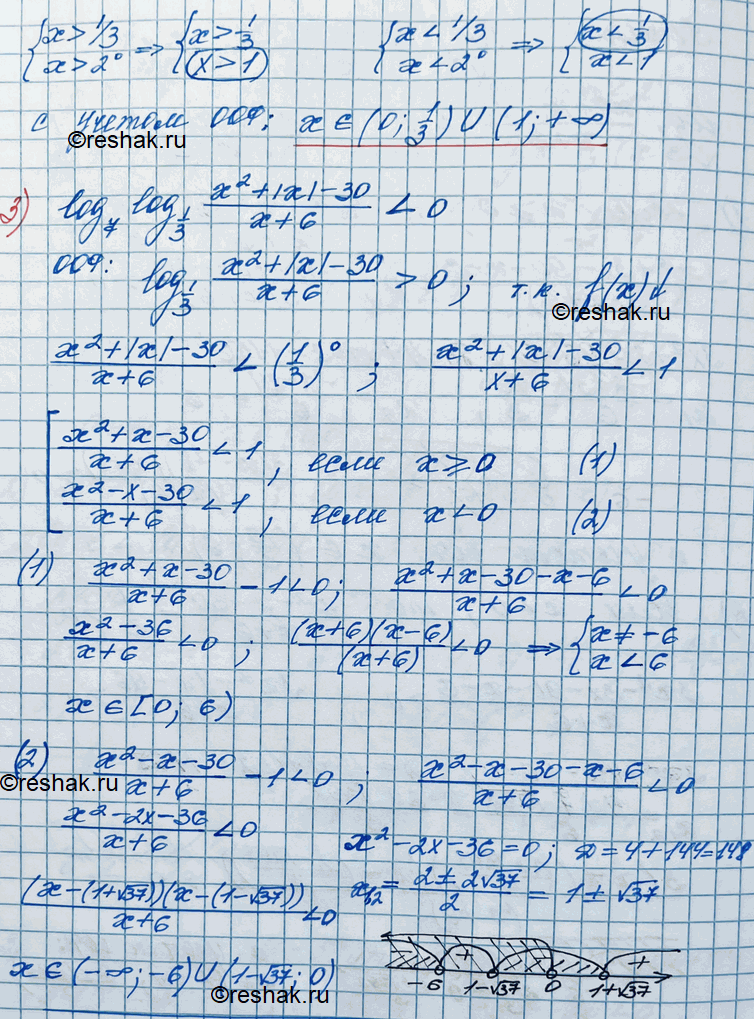 {x > 1/3 x > 2⁰ ⇒ {x > 1/3 x > 1 {x < 1/3 x < 2⁰ ⇒ {x < 1/3 x < 1
с учетом ООФ: x ∈ (0; 1/3) ∪ (1; +∞)
©reshak.ru
3) log₇ log_{1/3} (x²+|x|-30)/(x+6) < 0
ООФ: log_{1/3} (x²+|x|-30)/(x+6) > 0; т.к. f(x)↓
©reshak.ru
(x²+|x|-30)/(x+6) < (1/3)⁰; (x²+|x|-30)/(x+6) < 1
[(x²+x-30)/(x+6) < 1, если x ≥ 0 (1)
(x²-x-30)/(x+6) < 1, если x < 0 (2)
(1) (x²+x-30)/(x+6) - 1 < 0; (x²+x-30-x-6)/(x+6) < 0
(x²-36)/(x+6) < 0; (x+6)(x-6)/(x+6) < 0 ⇒ {x ≠ -6 x < 6
x ∈ [0; 6)
(2) (x²-x-30)/(x+6) - 1 < 0; (x²-x-30-x-6)/(x+6) < 0
©reshak.ru
(x²-2x-36)/(x+6) < 0
x²-2x-36=0; D=4+144=148
(x-(1+√37))(x-(1-√37))/(x+6) < 0
x₁,₂ = (2±2√37)/2 = 1±√37
x ∈ (-∞; -6) ∪ (1-√37; 0)
+ +
-6 1-√37 0 1+√37
©reshak.ru